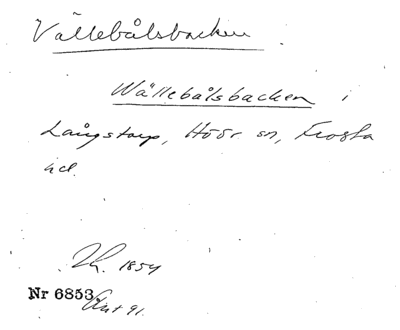 Vällebålsbacken
Wällebålsbacken i
Långstorp, Höör sn, Frosta
hd.
1854
Nr 6853 Ant 91.